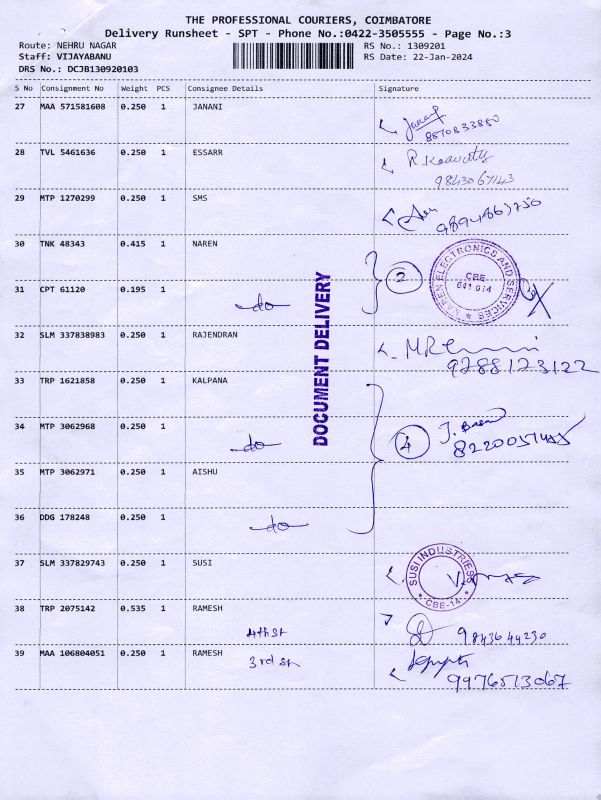 THE PROFESSIONAL COURIERS, COIMBATORE
Delivery Runsheet - SPT - Phone No.:0422-3505555 - Page No.:3
Route: NEHRU NAGAR
RS No.: 1309201
Staff: VIJAYABANU
RS Date: 22-Jan-2024
DRS No.: DCJB130920103
S No Consignment No Weight PCS Consignee Details Signature
27 MAA 571581608 0.250 1 JANANI
28 TVL 5461636 0.250 1 ESSARR
9843067143
29 MTP 1270299 0.250 1 SMS
30 TNK 48343 0.415 1 NAREN
2
NAREN ELECTRONICS AND SERVICES
CBE
641 014
31 CPT 61120 0.195 1
do
DOCUMENT DELIVERY
32 SLM 337838983 0.250 1 RAJENDRAN
9288123122
33 TRP 1621858 0.250 1 KALPANA
34 MTP 3062968 0.250 1
do
4
35 MTP 3062971 0.250 1 AISHU
36 DDG 178248 0.250 1
do
37 SLM 337829743 0.250 1 SUSI
SUSI INDUSTRIES
CBE-14
38 TRP 2075142 0.535 1 RAMESH
4th St
9843644230
39 MAA 106804051 0.250 1 RAMESH
3rd St
9976513067